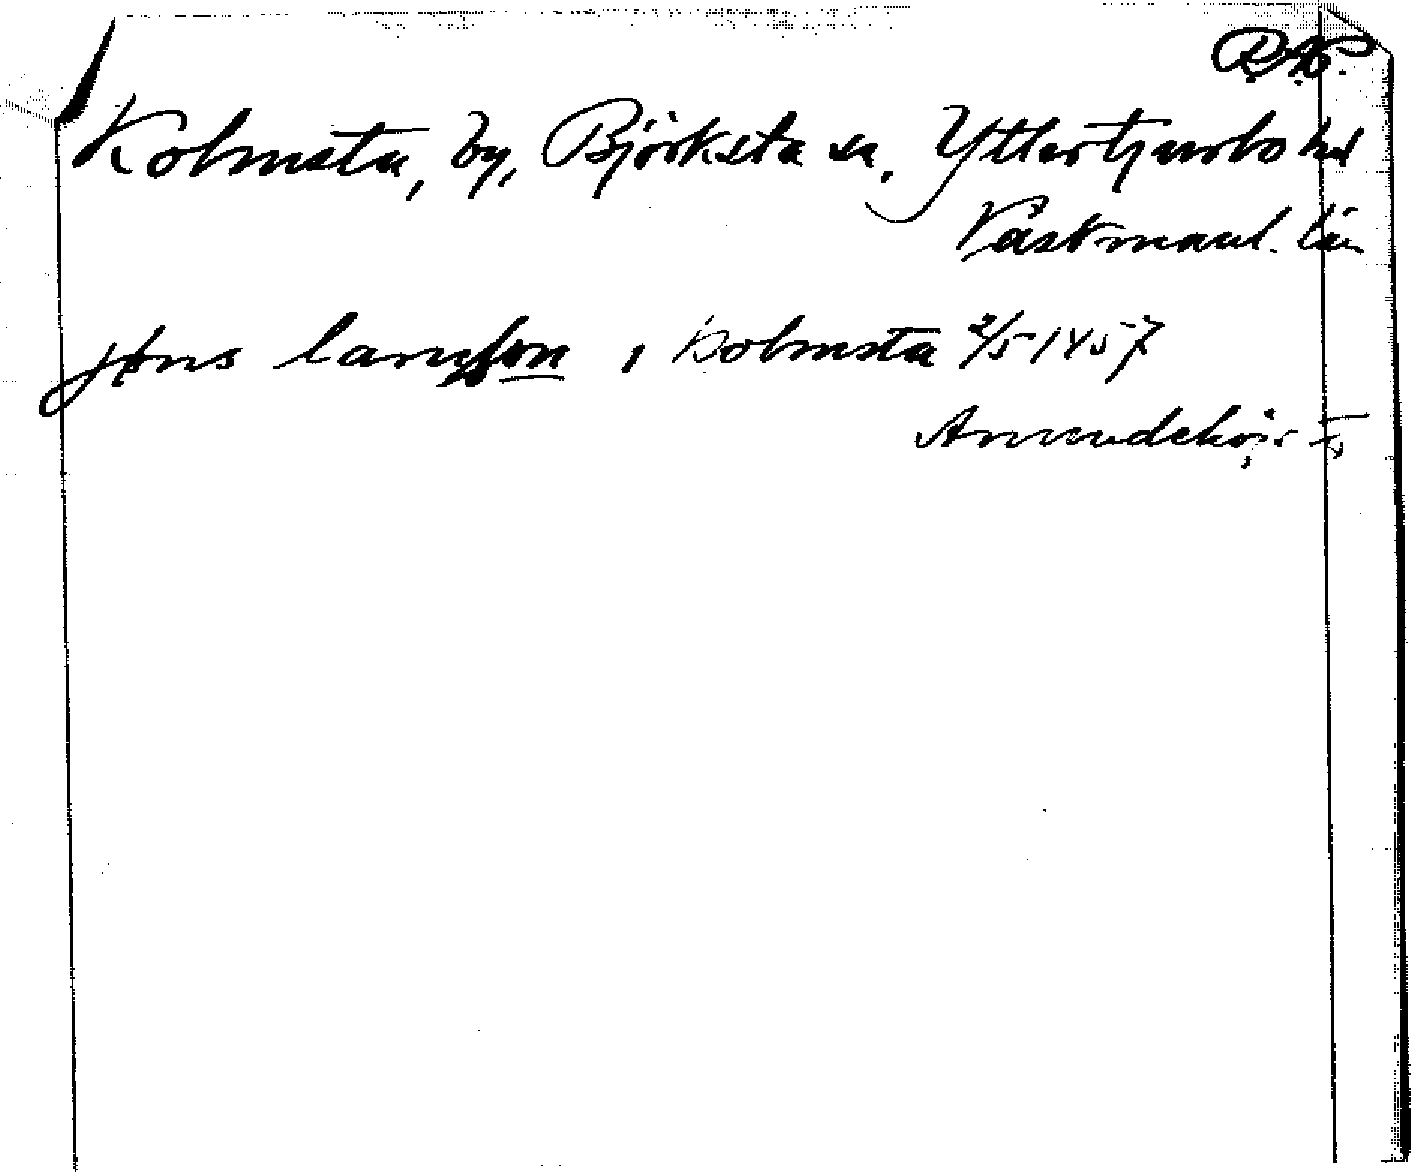 R.AP.
Kolmsta, by, Björksta sn, Yttertjurbo hd
Västmanl. län
jöns larusson i kolmsta 2/5 1457
Anundshögs